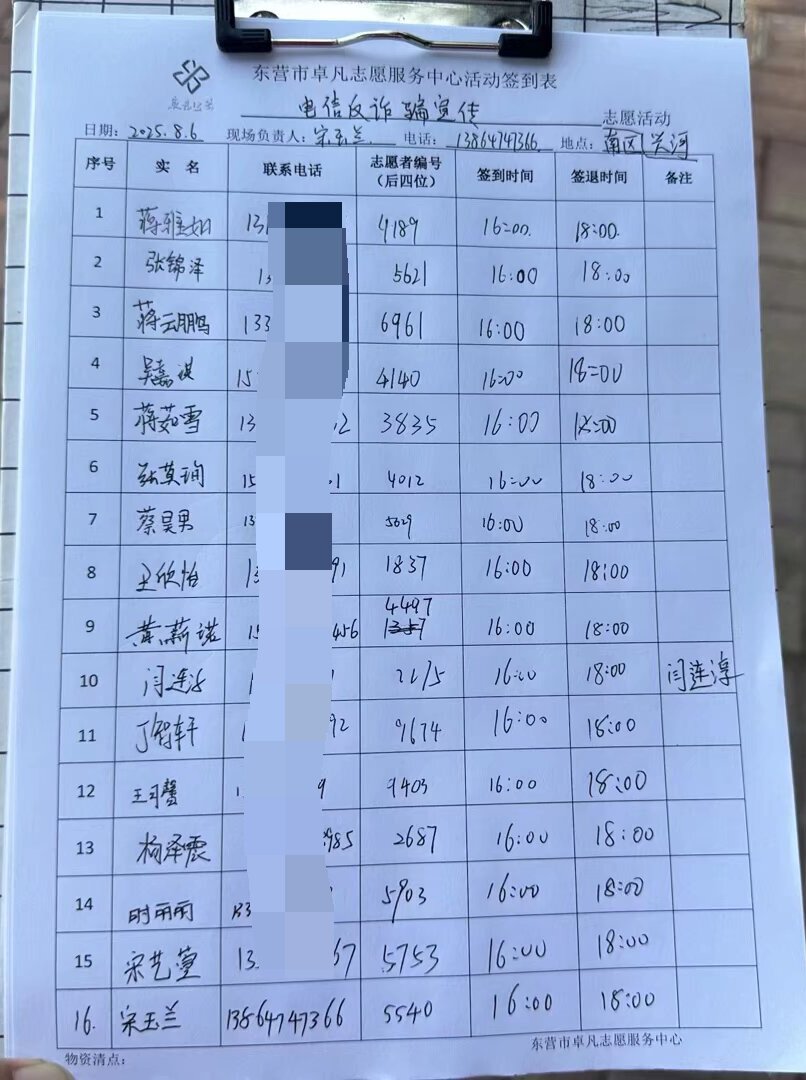 东营市卓凡志愿服务中心活动签到表
电信反诈骗宣传 志愿活动
日期：2025.8.6 现场负责人：宋玉兰 电话：13864747366 地点：南区 兴河
序号 实 名 联系电话 志愿者编号（后四位） 签到时间 签退时间 备注
1 蒋雅如 13 4189 16:00 18:00
2 张锦泽 13 5621 16:00 18:00
3 蒋云鹏 133 6961 16:00 18:00
4 吴嘉祺 15 4140 16:00 18:00
5 蒋茹雪 13 2 3835 16:00 18:00
6 张莫珣 15 01 4012 16:00 18:00
7 蔡昊男 13 5029 16:00 18:00
8 王欣怡 13 91 1837 16:00 18:00
9 黄蕲诺 15 456 4497 16:00 18:00
10 闫连淳 1 16:00 18:00 闫连淳
11 轩 92 9674 16:00 18:00
12 王 馨 9 9403 16:00 18:00
13 杨泽震 985 2687 16:00 18:00
14 时丽丽 183 5903 16:00 18:00
15 宋艺萱 13 67 5753 16:00 18:00
16. 宋玉兰 13864747366 5540 16:00 18:00
东营市卓凡志愿服务中心
物资清点：